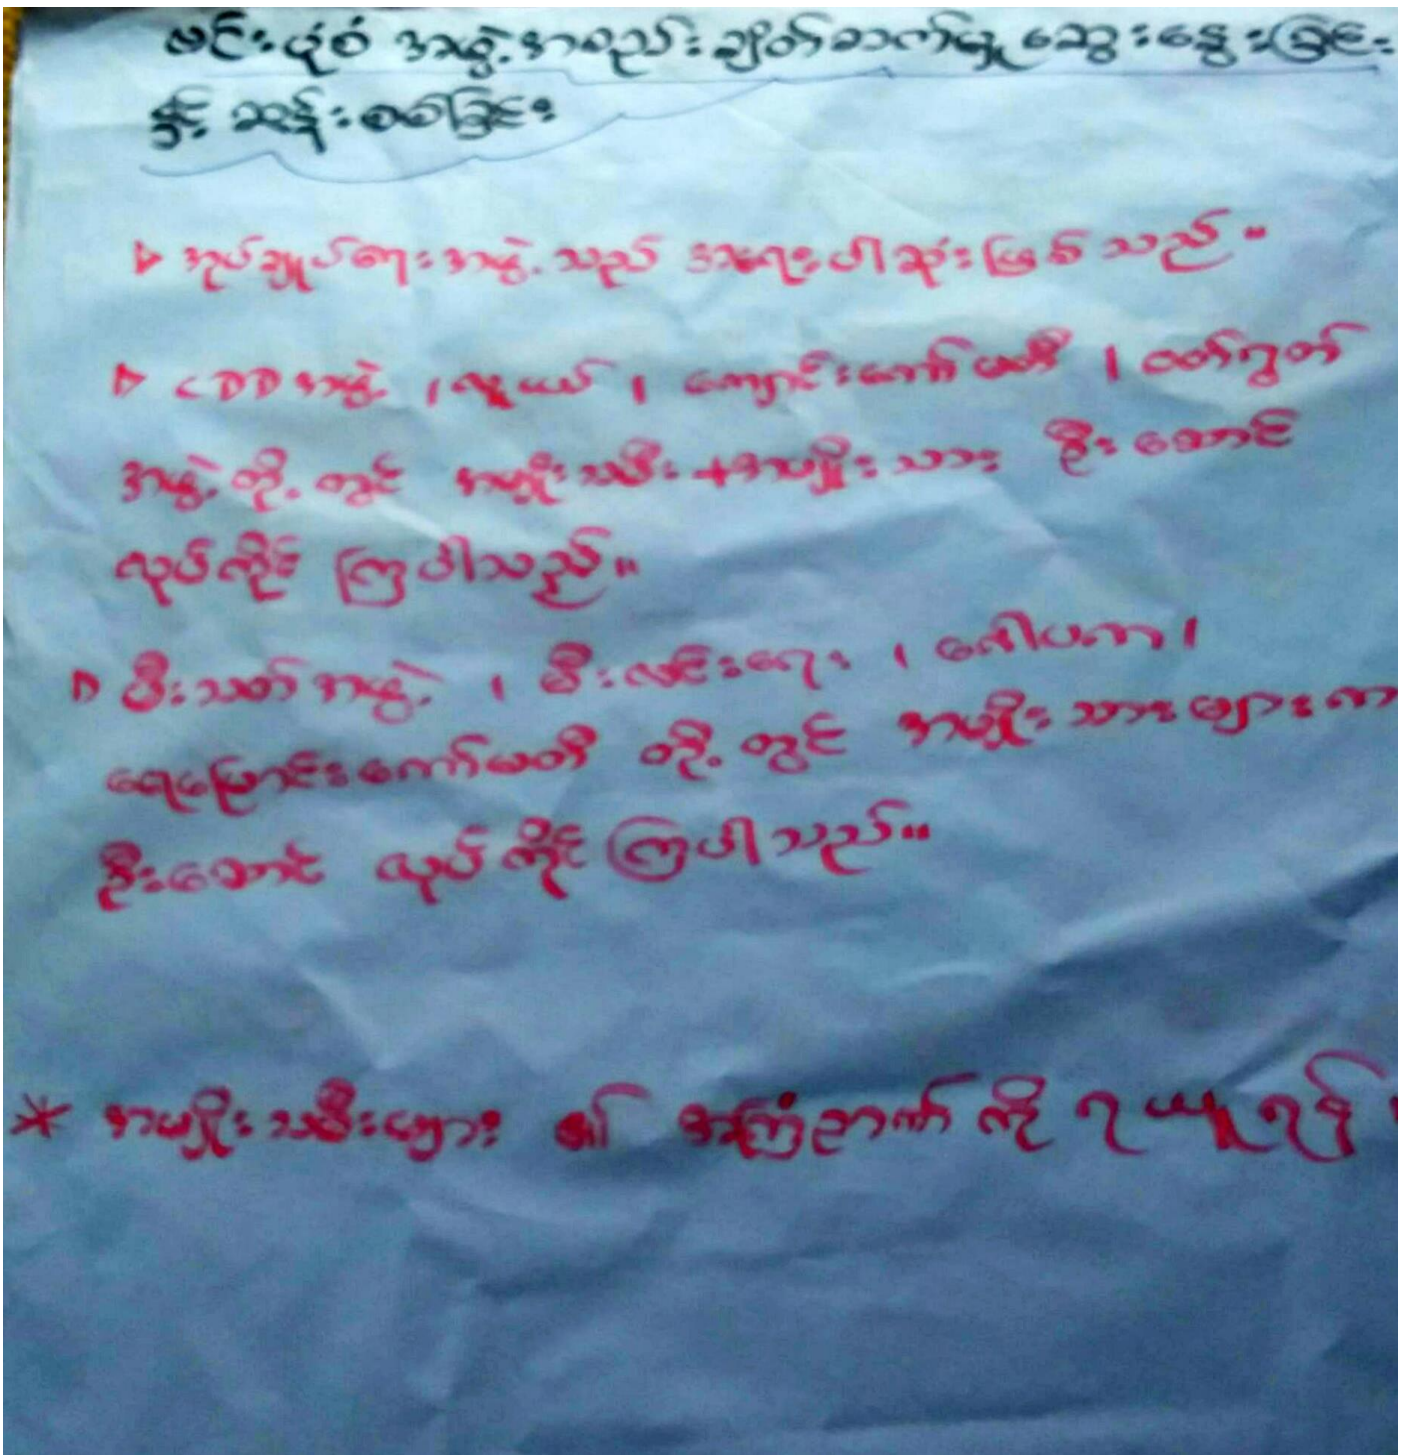 ဗင်းပုံစံ အဖွဲ့အစည်းချိတ်ဆက်မှု ဆွေးနွေးခြင်း
နှင့် ဆန်းစစ်ခြင်း
အုပ်ချုပ်ရေးအဖွဲ့သည် အရေးပါဆုံးဖြစ်သည်။
CDD အဖွဲ့၊ လူငယ်၊ ကျောင်းကော်မတီ၊ ဝတ်ရွတ်
အဖွဲ့တို့တွင် အမျိုးသမီး+အမျိုးသား ဦးဆောင်
လုပ်ကိုင်ကြပါသည်။
မီးသတ်အဖွဲ့၊ မီးလင်းရေး၊ ဂေါပက၊
ရေမြောင်းကော်မတီတို့တွင် အမျိုးသားများက
ဦးဆောင် လုပ်ကိုင်ကြပါသည်။
* အမျိုးသမီးများ ၏ အကြံဉာဏ် ကို ရယူရန်